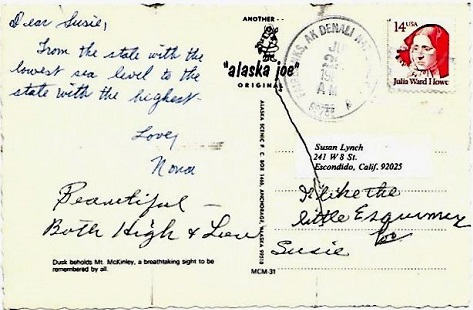 Dear Susie,
From the state with the
lowest sea level to the
state with the highest-
Love,
Nona
Beautiful -
Both High & Low
Dusk beholds Mt. McKinley, a breathtaking sight to be
remembered by all.
ANOTHER
"alaska joe"
ORIGINAL
MCM-31
AK DENALI
14¢ USA
Julia Ward Howe
Susan Lynch
241 W 8 St.
Escondido, Calif. 92025
I like the
little Esquimey
Joe
Susie